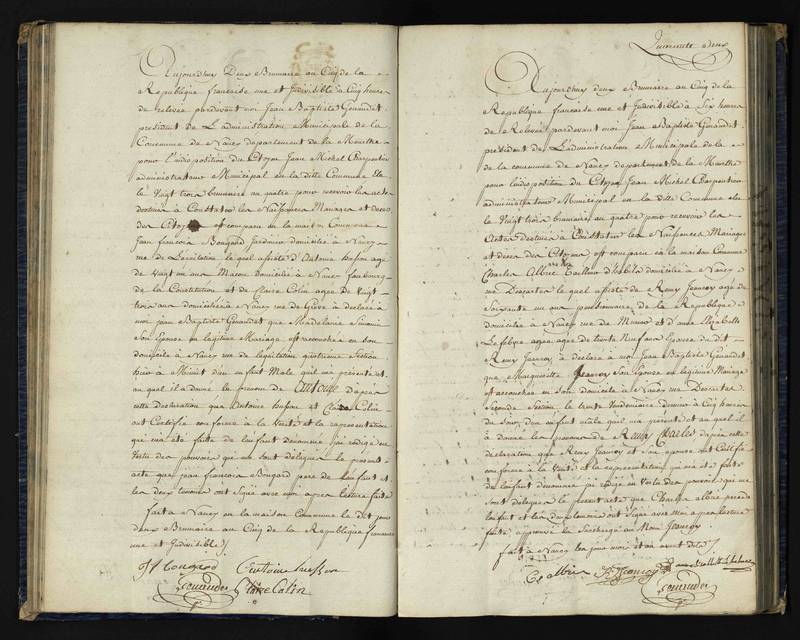 Aujourdhuy Deux Brumaire an Cinq de la
Republique francaise une et Indivisible a Cinq heures
de relevée pardevant moi Jean Baptiste Genaudet
president de L'administration Municipale de la
Commune de Nancy departement de la Meurthe
pour l'indisposition du Citoyen Jean Michel Charpentier
administrateur Municipal en la ditte Commune Elu
le Vingt trois brumaire an quatre pour recevoir les actes
destinés à Constater les Naissances Mariages et deces
des Citoyens est comparu en la maison Commune
Jean francois Bougard Jardinier domicilié a Nancy
rue de le quel assisté D'Antoine husson agé
de Vingt un ans Macon Domicilié a Nancy faubourg
de la Constitution et de Claire Colin agée de Vingt
trois ans domiciliée a Nancy rue de Grève a déclaré à
moi Jean Baptiste Genaudet que Madelaine
Son Epouse en legitime Mariage est accouchée en son
domicile a Nancy rue de legislation quatrieme Section
hier à Minuit d'un enfant Male qu'il m'a présenté et
au quel il a donné le prenom de Antoine d'après
cette declaration que Antoine husson et Claire Colin
ont Certifié conforme à la Verité et la representation
qui m'a été faite de l'enfant dénommé j'ai redigé en
Vertu des pouvoirs qui me sont délégués le présent
acte que Jean francois Bougard pere de l'enfant et
les deux temoins ont signé avec moi apres lecture faite
fait à Nancy en la maison Commune le dit jour
deux Brumaire an Cinq de la Republique francaise
une et Indivisible
Jf Bougard Antoine husson
Claire Colin
Quarante deux
Aujourdhuy deux Brumaire an Cinq de la
Republique francaise une et Indivisible à Six heures
de Relevée pardevant moi Jean Baptiste Genaudet
président de L'administration Municipale de la
de la commune de Nancy departement de la Meurthe
pour l'indisposition du Citoyen Jean Michel Charpentier
administrateur Municipal en la ditte Commune elu
le Vingt trois brumaire an quatre pour recevoir les
Actes destinés à Constater les Naissances Mariages
et deces des Citoyens est comparu à la maison Commune
Charles Albrié Tailleur d'habits domicilié a Nancy
rue Descartes le quel assisté de Remy Jeanroy agé de
Soixante un ans pensionnaire de la Republique
domicilié a Nancy rue de et d'anne Elizabeth
Lefebvre agée de trente Neuf ans Epouse du dit
Remy Jeanroy a déclaré a moi Jean Baptiste Genaudet
que Margueritte Jeanroy Son Epouse en légitime Mariage
est accouchée en Son domicile à Nancy rue Descartes
Seconde Section le trente Vendemiaire dernier à Cinq heures
du Soir d'un enfant male qu'il m'a présenté et au quel il
à donné les prenoms de Remy Charles d'après cette
declaration que Remy Jeanroy et son epouse ont Certifié
conforme à la Verité et la representation qui m'a été faite
de l'enfant dénommé j'ai redigé en Vertu des pouvoirs qui me
sont délégués le present acte que Charles albrié pere de
l'enfant et les deux temoins ont Signé avec moi apres lecture
faite approuvé la Surcharge au Mot Jeanroy
fait a Nancy les jour mois et an avant dits
Ch albrié R Jeanroy